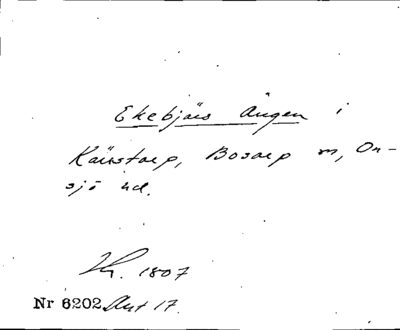 Ekebjärs Ängen i
Kärrstorp, Bosarp sn, On-
sjö hd.
1807
Nr 6202 Akt 17.